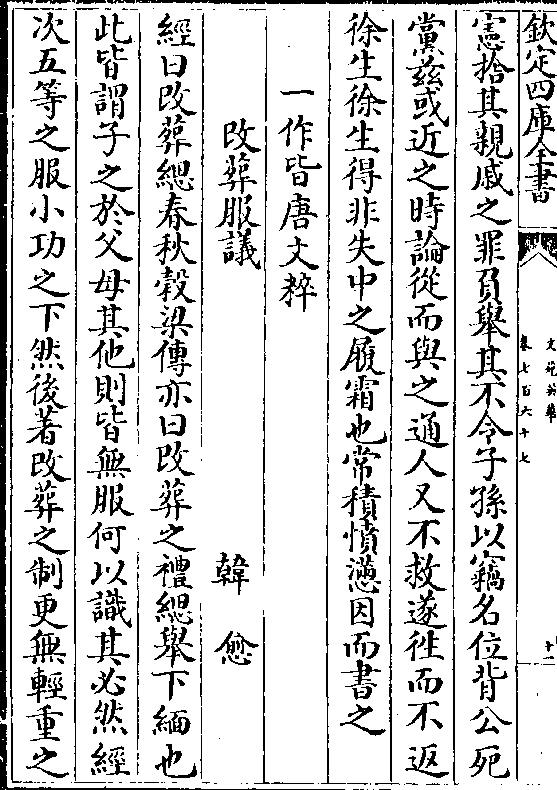 欽定四庫全書
文苑英華
卷七百六十七
十一
憲捨其親戚之罪負舉其不令子孫以竊名位背公死
黨茲或近之時論從而與之通人又不救遂徃而不返
徐生徐生得非失中之履霜也常積憤懣因而書之
一作皆唐文粹
改葬服議
韓愈
經曰改葬緦春秋榖梁傳亦曰改葬之禮緦舉下緬也
此皆謂子之於父母其他則皆無服何以識其必然經
次五等之服小功之下然後著改葬之制更無輕重之